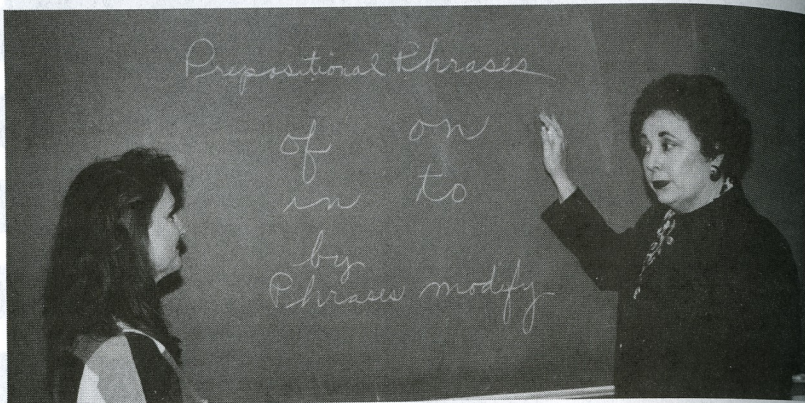 Prepositional Phrases
of on
in to
by
Phrases modify